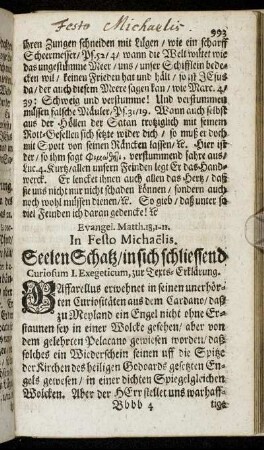 Festo Michaelis.
993
ihren Zungen schneiden mit Lügen / wie ein scharff
Scheermesser / Ps. 52/4/ wann die Welt wütet wie
das ungestümme Meer / uns / unser Schifflein bede-
cken wil / keinen Frieden hat und hält / so ist JEsus
da / der auch diesem Meere sagen kan / wie Marc. 4/
39: Schweig und verstumme! Und verstummen
müssen falsche Mäuler / Ps. 31/19. Wann auch selbst
aus der Höllen der Satan trotziglich mit seinem
Rott-Gesellen sich setzte wider dich / so muß er doch
mit Spott von seinen Räncken lassen / &c. Hier ist
der / so ihm sagt verstummend fahre aus /
Luc. 4. Kurtz / allen unsern Feinden legt Er das Hand-
werck. Er lencket ihnen auch allen das Hertz / daß
sie uns nicht nur nicht schaden können / sondern auch
noch wohl müssen dienen / &c. So gieb / daß unter so
viel Feinden ich daran gedencke! &c
Evangel. Matth. 18, 1-11.
In Festo Michaëlis.
Seelen Schatz / in sich schliessend
Curiosum I. Exegeticum, zur Texts Erklärung.
GAffarellus erwehnet in seinen unerhör-
ten Curiositäten aus dem Cardano / daß
zu Meyland ein Engel nicht ohne Er-
staunen sey in einer Wolcke gesehen / aber von
dem gelehrten Pelacano gewiesen worden / daß
solches ein Wiederschein seinen uff die Spitze
der Kirchen des heiligen Godoards gesetzten En-
gels gewesen / in einer dichten Spiegelgleichen
Wolcken. Aber der HErr stellet uns warhaff-
Bbbb 4
tige